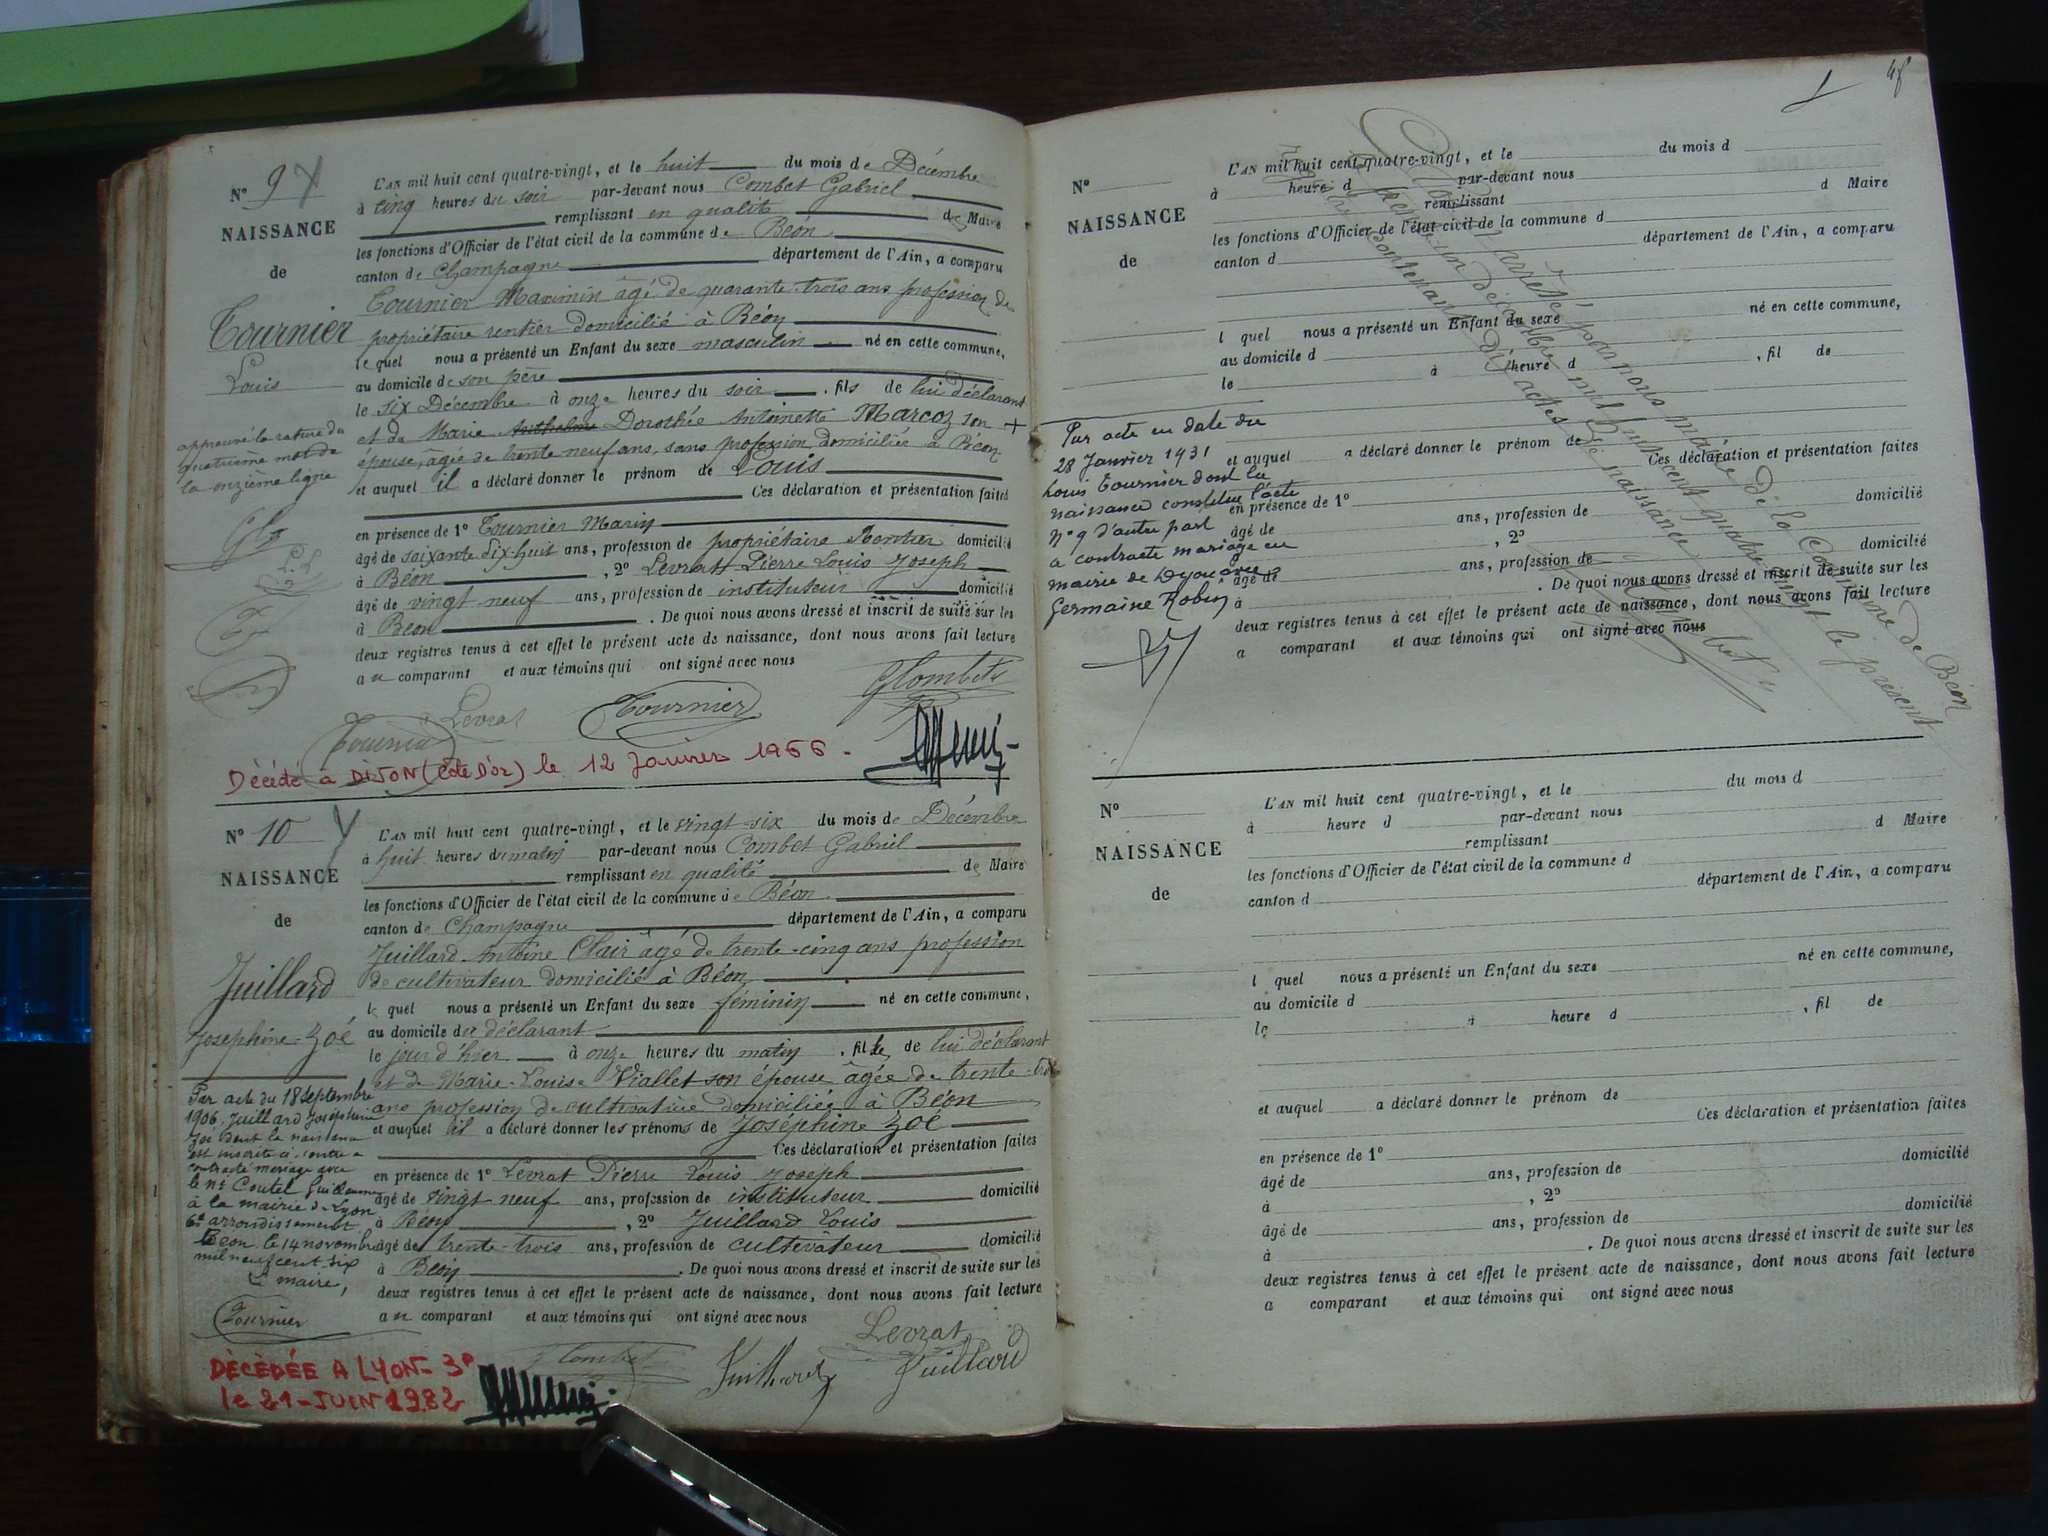 N° 9
NAISSANCE
de
Tournier
Louis
approuvé la rature du
quatrième mot de
la onzième ligne
L'AN mil huit cent quatre-vingt, et le huit du mois de Décembre
à cinq heures du soir par-devant nous Combet Gabriel
remplissant en qualité de Maire
les fonctions d'Officier de l'état civil de la commune de Béon
canton de Champagne département de l'Ain, a comparu
Tournier Maximin âgé de quarante-trois ans profession de
propriétaire rentier domicilié à Béon
le quel nous a présenté un Enfant du sexe masculin né en cette commune,
au domicile de son père
le six Décembre à onze heures du soir, fils de lui déclarant
et de Marie Anthelme Dorothée Antoinette Marcoz son
épouse, âgée de trente neuf ans, sans profession domiciliée à Béon
et auquel il a déclaré donner le prénom de Louis
Ces déclaration et présentation faites
en présence de 1° Tournier Marin
âgé de soixante dix-huit ans, profession de propriétaire Rentier domicilié
à Béon, 2° Levrat Pierre Louis Joseph
âgé de vingt neuf ans, profession de instituteur domicilié
à Béon. De quoi nous avons dressé et inscrit de suite sur les
deux registres tenus à cet effet le présent acte de naissance, dont nous avons fait lecture
au comparant et aux témoins qui ont signé avec nous
GCombet
Levrat Tournier
Tournier
Décédé à DIJON (Côte D'or) le 12 Janvier 1966.
N° 10
NAISSANCE
de
Juillard
Joséphine-Zoé
Par acte du 18 Septembre
1906, Juillard Joséphine
Zoé dont la naissance
est inscrite ci-contre a
contracté mariage avec
le n° Coutel Guillaume
à la mairie de Lyon
6e arrondissement
Béon le 14 novembre
mil neuf cent six
Le maire,
Tournier
L'AN mil huit cent quatre-vingt, et le vingt-six du mois de Décembre
à huit heures du matin par-devant nous Combet Gabriel
remplissant en qualité de Maire
les fonctions d'Officier de l'état civil de la commune de Béon
canton de Champagne département de l'Ain, a comparu
Juillard Antoine Clair âgé de trente-cinq ans profession
de cultivateur domicilié à Béon
le quel nous a présenté un Enfant du sexe féminin né en cette commune,
au domicile du déclarant
le jour d'hier à onze heures du matin, fille de lui déclarant
et de Marie-Louise Viallet son épouse âgée de trente
ans profession de cultivatrice domiciliée à Béon
et auquel il a déclaré donner les prénoms de Joséphine Zoé
Ces déclaration et présentation faites
en présence de 1° Levrat Pierre Louis Joseph
âgé de vingt neuf ans, profession de instituteur domicilié
à Béon, 2° Juillard Louis
âgé de trente-trois ans, profession de cultivateur domicilié
à Béon. De quoi nous avons dressé et inscrit de suite sur les
deux registres tenus à cet effet le présent acte de naissance, dont nous avons fait lecture
au comparant et aux témoins qui ont signé avec nous
Levrat
GCombet Juillard Juillard
DÉCÉDÉE A LYON-3e
le 21-JUIN 1982
N°
NAISSANCE
de
L'AN mil huit cent quatre-vingt, et le du mois d
à heure d par-devant nous
remplissant d Maire
les fonctions d'Officier de l'état civil de la commune d
canton d département de l'Ain, a comparu
l quel nous a présenté un Enfant du sexe né en cette commune,
au domicile d
le à heure d, fil de
et auquel a déclaré donner le prénom de
Ces déclaration et présentation faites
en présence de 1° domicilié
âgé de ans, profession de
, 2° domicilié
âgé de ans, profession de
à . De quoi nous avons dressé et inscrit de suite sur les
deux registres tenus à cet effet le présent acte de naissance, dont nous avons fait lecture
a comparant et aux témoins qui ont signé avec nous
Par acte en date du
28 Janvier 1931
Louis Tournier dont la
naissance constitue l'acte
n° 9 d'autre part
a contracté mariage en
mairie de Dijon avec
Germaine Robin
Clos et arrêté par nous maire de la Commune de Béon
le décembre mil huit cent quatre vingt le présent
registre contenant dix actes de naissance
N°
NAISSANCE
de
L'AN mil huit cent quatre-vingt, et le du mois d
à heure d par-devant nous
remplissant d Maire
les fonctions d'Officier de l'état civil de la commune d
canton d département de l'Ain, a comparu
l quel nous a présenté un Enfant du sexe né en cette commune,
au domicile d
le à heure d, fil de
et auquel a déclaré donner le prénom de
Ces déclaration et présentation faites
en présence de 1° domicilié
âgé de ans, profession de
à , 2° domicilié
âgé de ans, profession de
à . De quoi nous avons dressé et inscrit de suite sur les
deux registres tenus à cet effet le présent acte de naissance, dont nous avons fait lecture
a comparant et aux témoins qui ont signé avec nous